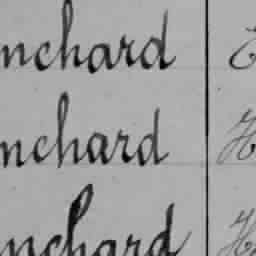 nchard
nchard
nchard